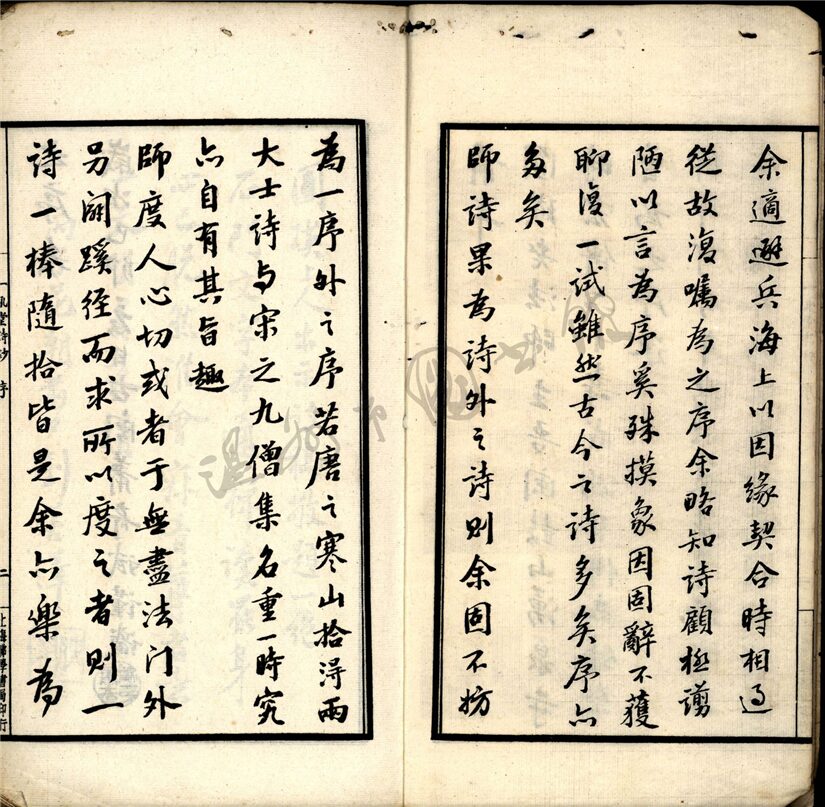 余適避兵海上以因緣契合時相過
從故復囑為之序余略知詩顧極譾
陋以言為序奚殊摸象因固辭不獲
聊復一試雖然古今之詩多矣序亦
多矣
師詩果為詩外之詩則余固不妨
為一序外之序若唐之寒山拾得兩
大士詩与宋之九僧集名重一時究
亦自有其旨趣
師度人心切或者于無盡法门外
另闢蹊径而求所以度之者則一
詩一棒隨拾皆是余亦樂為
堂詩鈔 序
二
上海佛學書局印行
溫州市圖書館